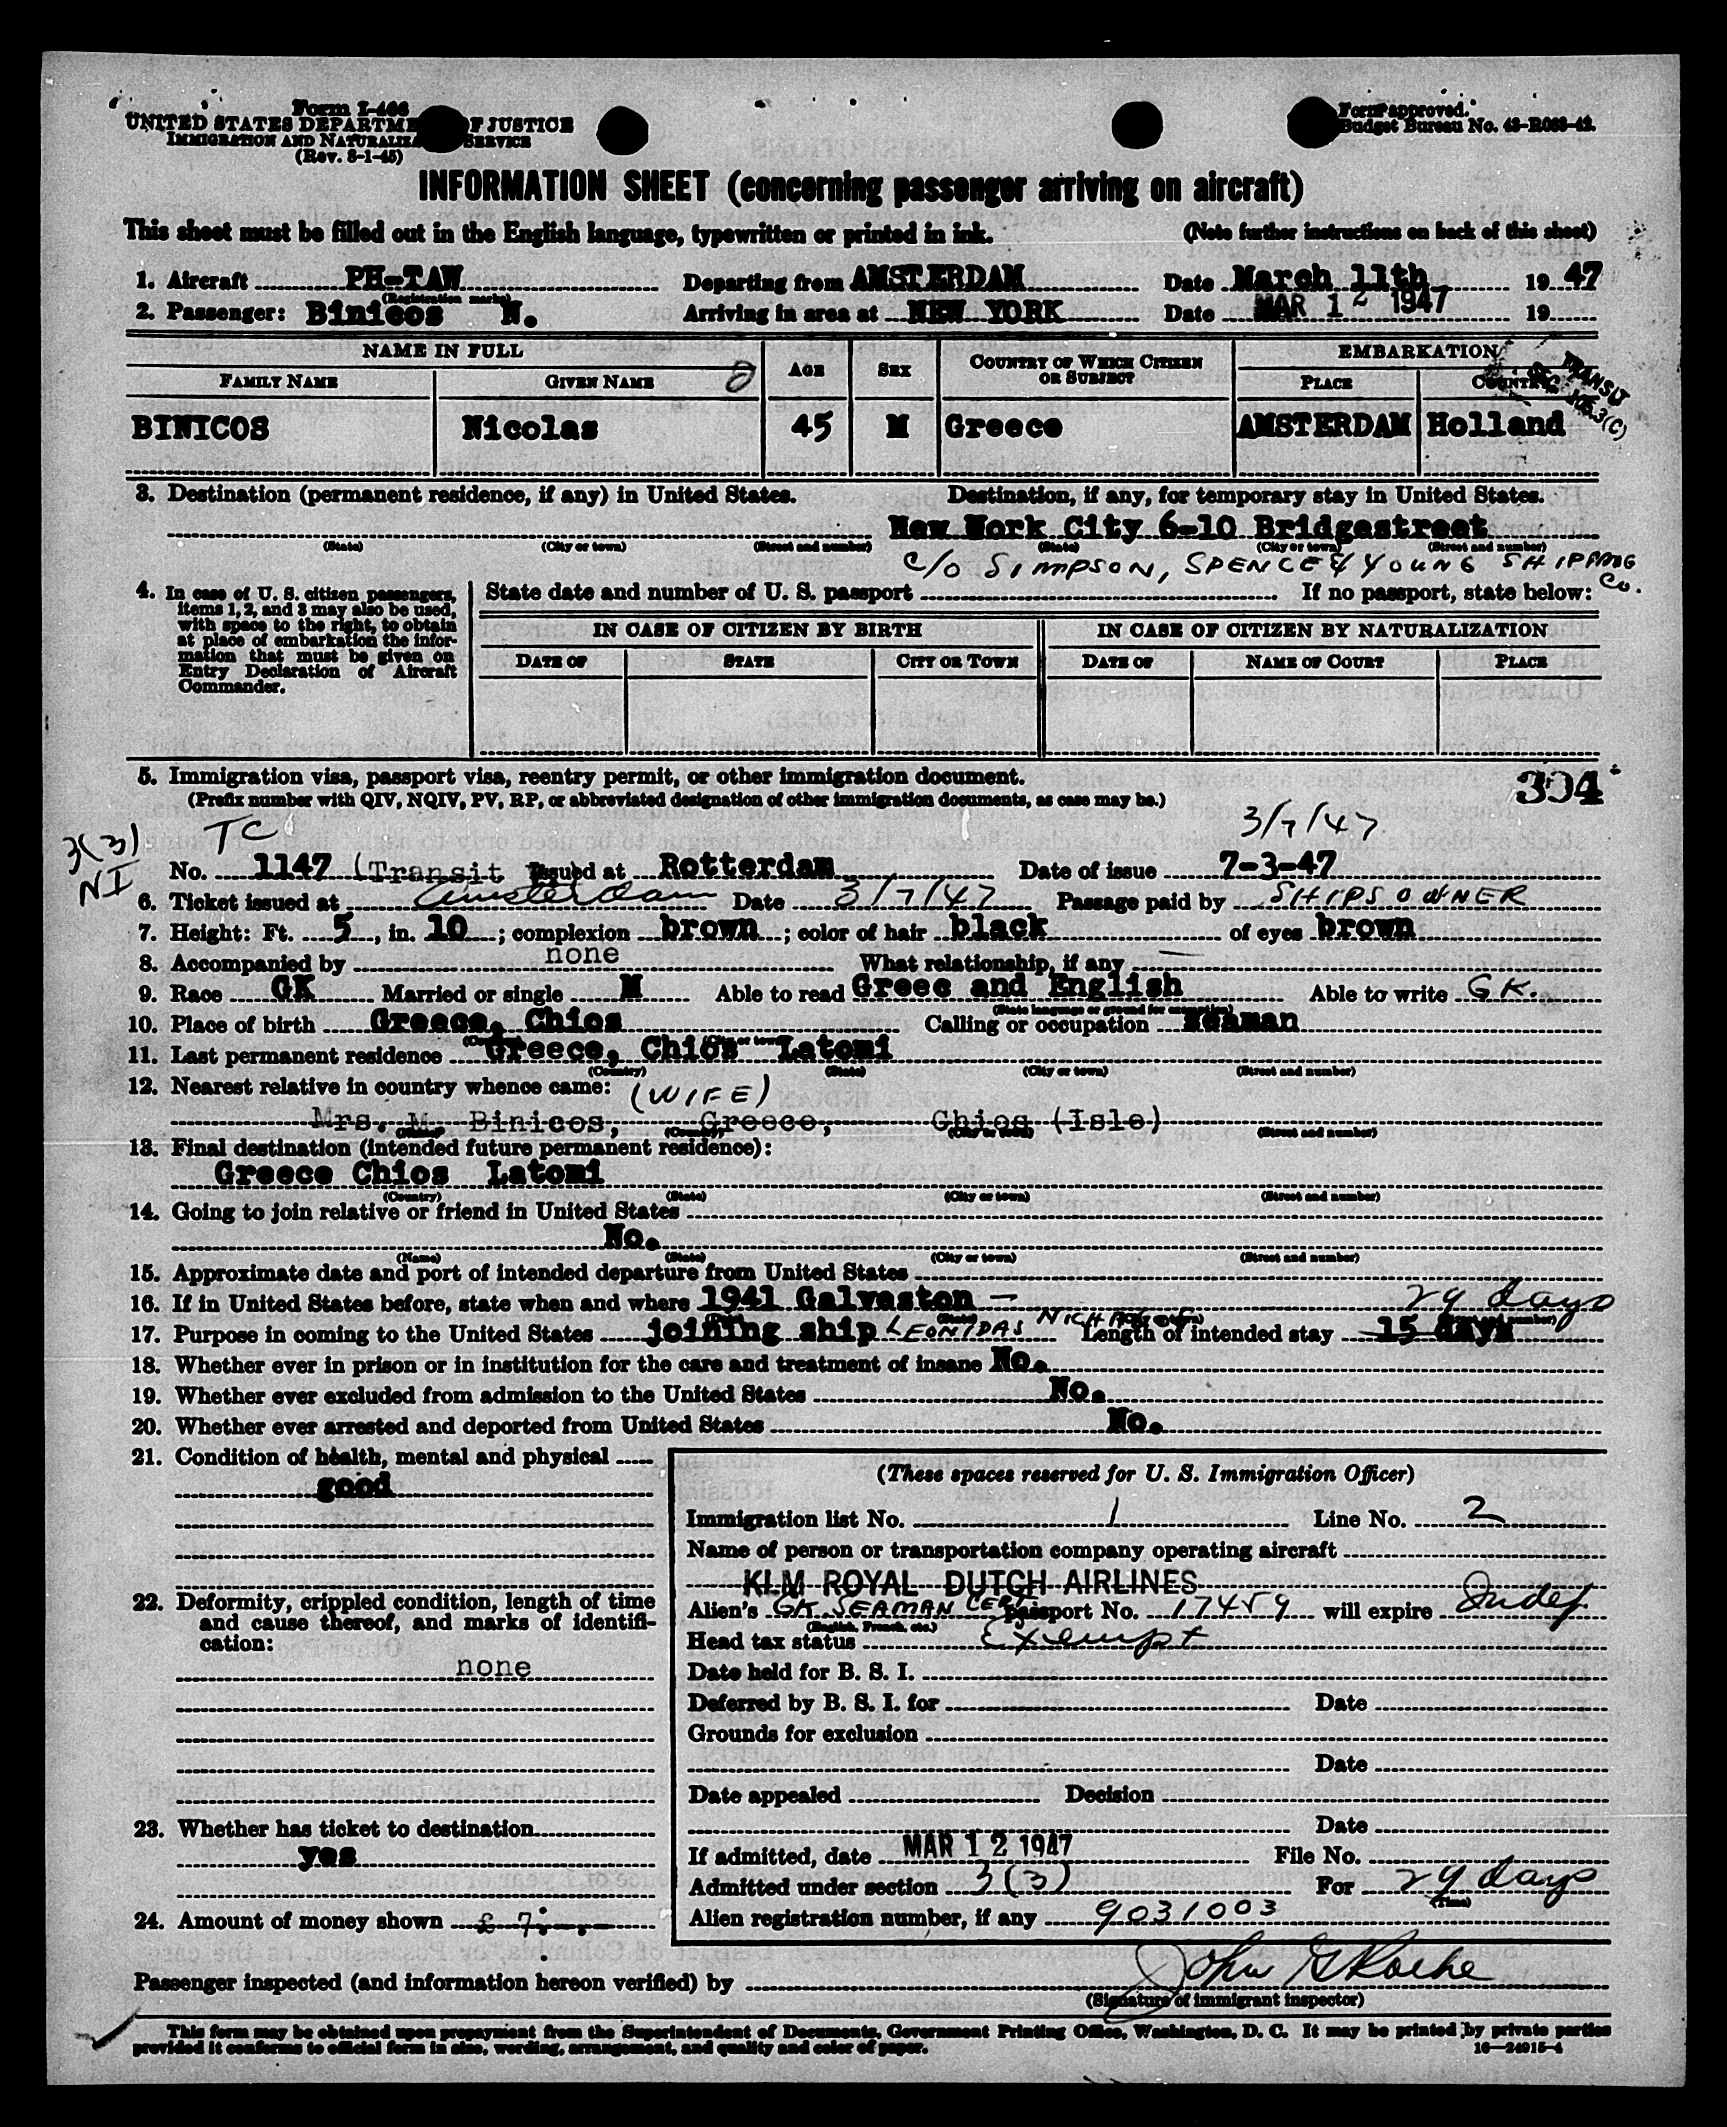 Form I-466
UNITED STATES DEPARTMENT OF JUSTICE
IMMIGRATION AND NATURALIZATION SERVICE
(Rev. 8-1-45)
Form approved.
Budget Bureau No. 43-R083-42.
INFORMATION SHEET (concerning passenger arriving on aircraft)
This sheet must be filled out in the English language, typewritten or printed in ink. (Note further instructions on back of this sheet)
1. Aircraft PH-TAW Departing from AMSTERDAM Date March 11th 1947
(Registration marks)
2. Passenger: Binicos N. Arriving in area at NEW YORK Date MAR 12 1947 19
NAME IN FULL AGE SEX COUNTRY OF WHICH CITIZEN OR SUBJECT EMBARKATION
FAMILY NAME GIVEN NAME PLACE COUNTRY
TRANSIT
SEC. 3(C)
BINICOS Nicolas 45 M Greece AMSTERDAM Holland
3. Destination (permanent residence, if any) in United States. Destination, if any, for temporary stay in United States.
New York City 6-10 Bridgestreet
(State) (City or town) (Street and number) (State) (City or town) (Street and number)
C/O SIMPSON, SPENCE & YOUNG SHIPPING Co.
4. In case of U. S. citizen passengers, items 1, 2, and 3 may also be used, with space to the right, to obtain at place of embarkation the information that must be given on Entry Declaration of Aircraft Commander.
State date and number of U. S. passport If no passport, state below:
IN CASE OF CITIZEN BY BIRTH IN CASE OF CITIZEN BY NATURALIZATION
DATE OF STATE CITY OR TOWN DATE OF NAME OF COURT PLACE
5. Immigration visa, passport visa, reentry permit, or other immigration document. 304
(Prefix number with QIV, NQIV, PV, RP, or abbreviated designation of other immigration documents, as case may be.)
3(3) NI
TC 3/7/47
No. 1147 (Transit) Issued at Rotterdam Date of issue 7-3-47
6. Ticket issued at Amsterdam Date 3/7/47 Passage paid by SHIPSOWNER
7. Height: Ft. 5, in. 10; complexion brown; color of hair black of eyes brown
8. Accompanied by none What relationship, if any —
9. Race GK Married or single M Able to read Greec and English Able to write GK.
(State language or ground for exemption)
10. Place of birth Greece, Chios Calling or occupation seaman
(Country) (City or town)
11. Last permanent residence Greece, Chios Latomi
(Country) (State) (City or town) (Street and number)
12. Nearest relative in country whence came: (WIFE)
Mrs. M. Binicos, Greece, Chios (Isle)
(Name) (Country) (City or town) (Street and number)
13. Final destination (intended future permanent residence):
Greece Chios Latomi
(Country) (State) (City or town) (Street and number)
14. Going to join relative or friend in United States
No.
(Name) (State) (City or town) (Street and number)
15. Approximate date and port of intended departure from United States
16. If in United States before, state when and where 1941 Galveston — 29 days
17. Purpose in coming to the United States joining ship LEONIDAS Length of intended stay 15 days
18. Whether ever in prison or in institution for the care and treatment of insane No.
19. Whether ever excluded from admission to the United States No.
20. Whether ever arrested and deported from United States No.
21. Condition of health, mental and physical
good
22. Deformity, crippled condition, length of time and cause thereof, and marks of identification:
none
23. Whether has ticket to destination
yes
24. Amount of money shown £ 7
(These spaces reserved for U. S. Immigration Officer)
Immigration list No. 1 Line No. 2
Name of person or transportation company operating aircraft
KLM ROYAL DUTCH AIRLINES
Alien's GK SEAMAN CERT passport No. 17459 will expire Indef
(English, French, etc.)
Head tax status Exempt
Date held for B. S. I.
Deferred by B. S. I. for Date
Grounds for exclusion
Date
Date appealed Decision
Date
If admitted, date MAR 12 1947 File No.
Admitted under section 3(3) For 29 days
(Time)
Alien registration number, if any 9031003
Passenger inspected (and information hereon verified) by John G Roche
(Signature of immigrant inspector)
This form may be obtained upon prepayment from the Superintendent of Documents, Government Printing Office, Washington, D. C. It may be printed by private parties
provided it conforms to official form in size, wording, arrangement, and quality and color of paper. 16—24915-4